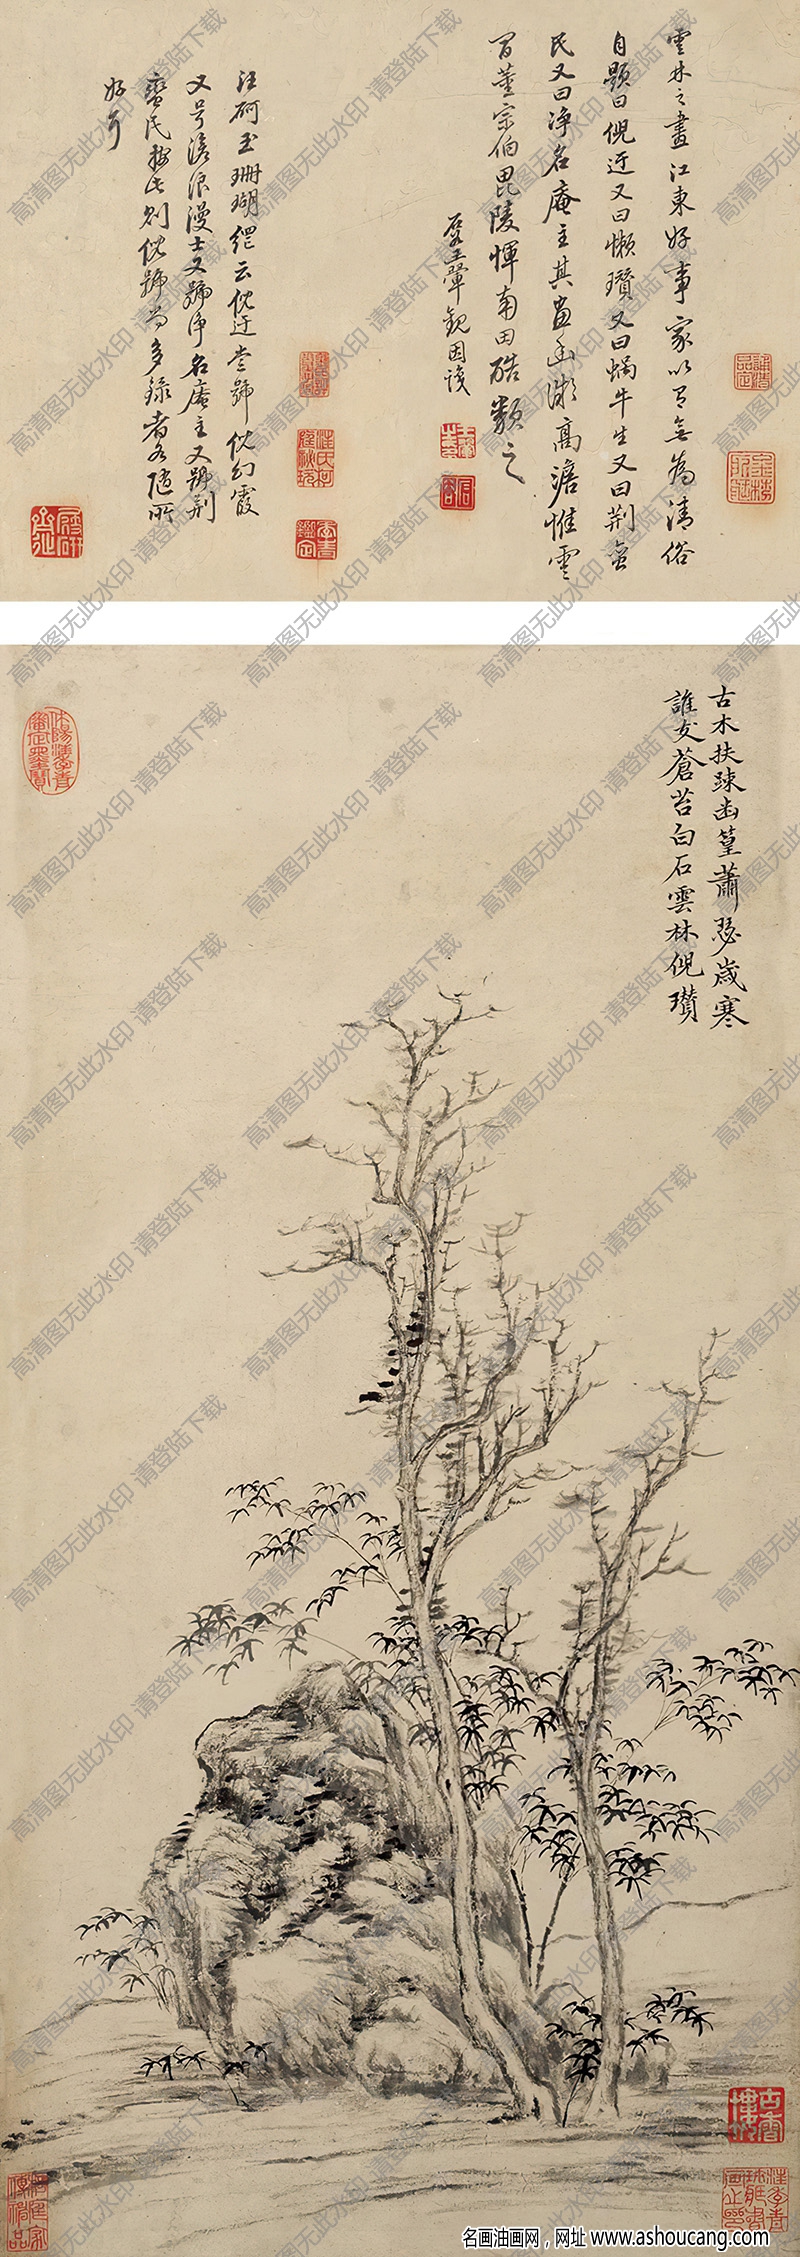 雲林之畫江東好事家以有無為清俗
自題曰倪迂又曰懶瓚又曰蝸牛生又曰荆蠻
民又曰淨名庵主其畫幽澹高澹惟雲
間董宗伯毘陵惲南田酷類之
居士翬觀因識
汪砢玉珊瑚網云倪迂
號倪幻霞
又號滄浪漫士又號淨名庵主又號荆
蠻民按此則倪號尚多錄者各隨所
好耳
古木扶疎幽篁蕭瑟歲寒
誰友蒼苔白石雲林倪瓚
高清图无此水印 请登陆下载
名画油画网，网址 www.ashoucang.com